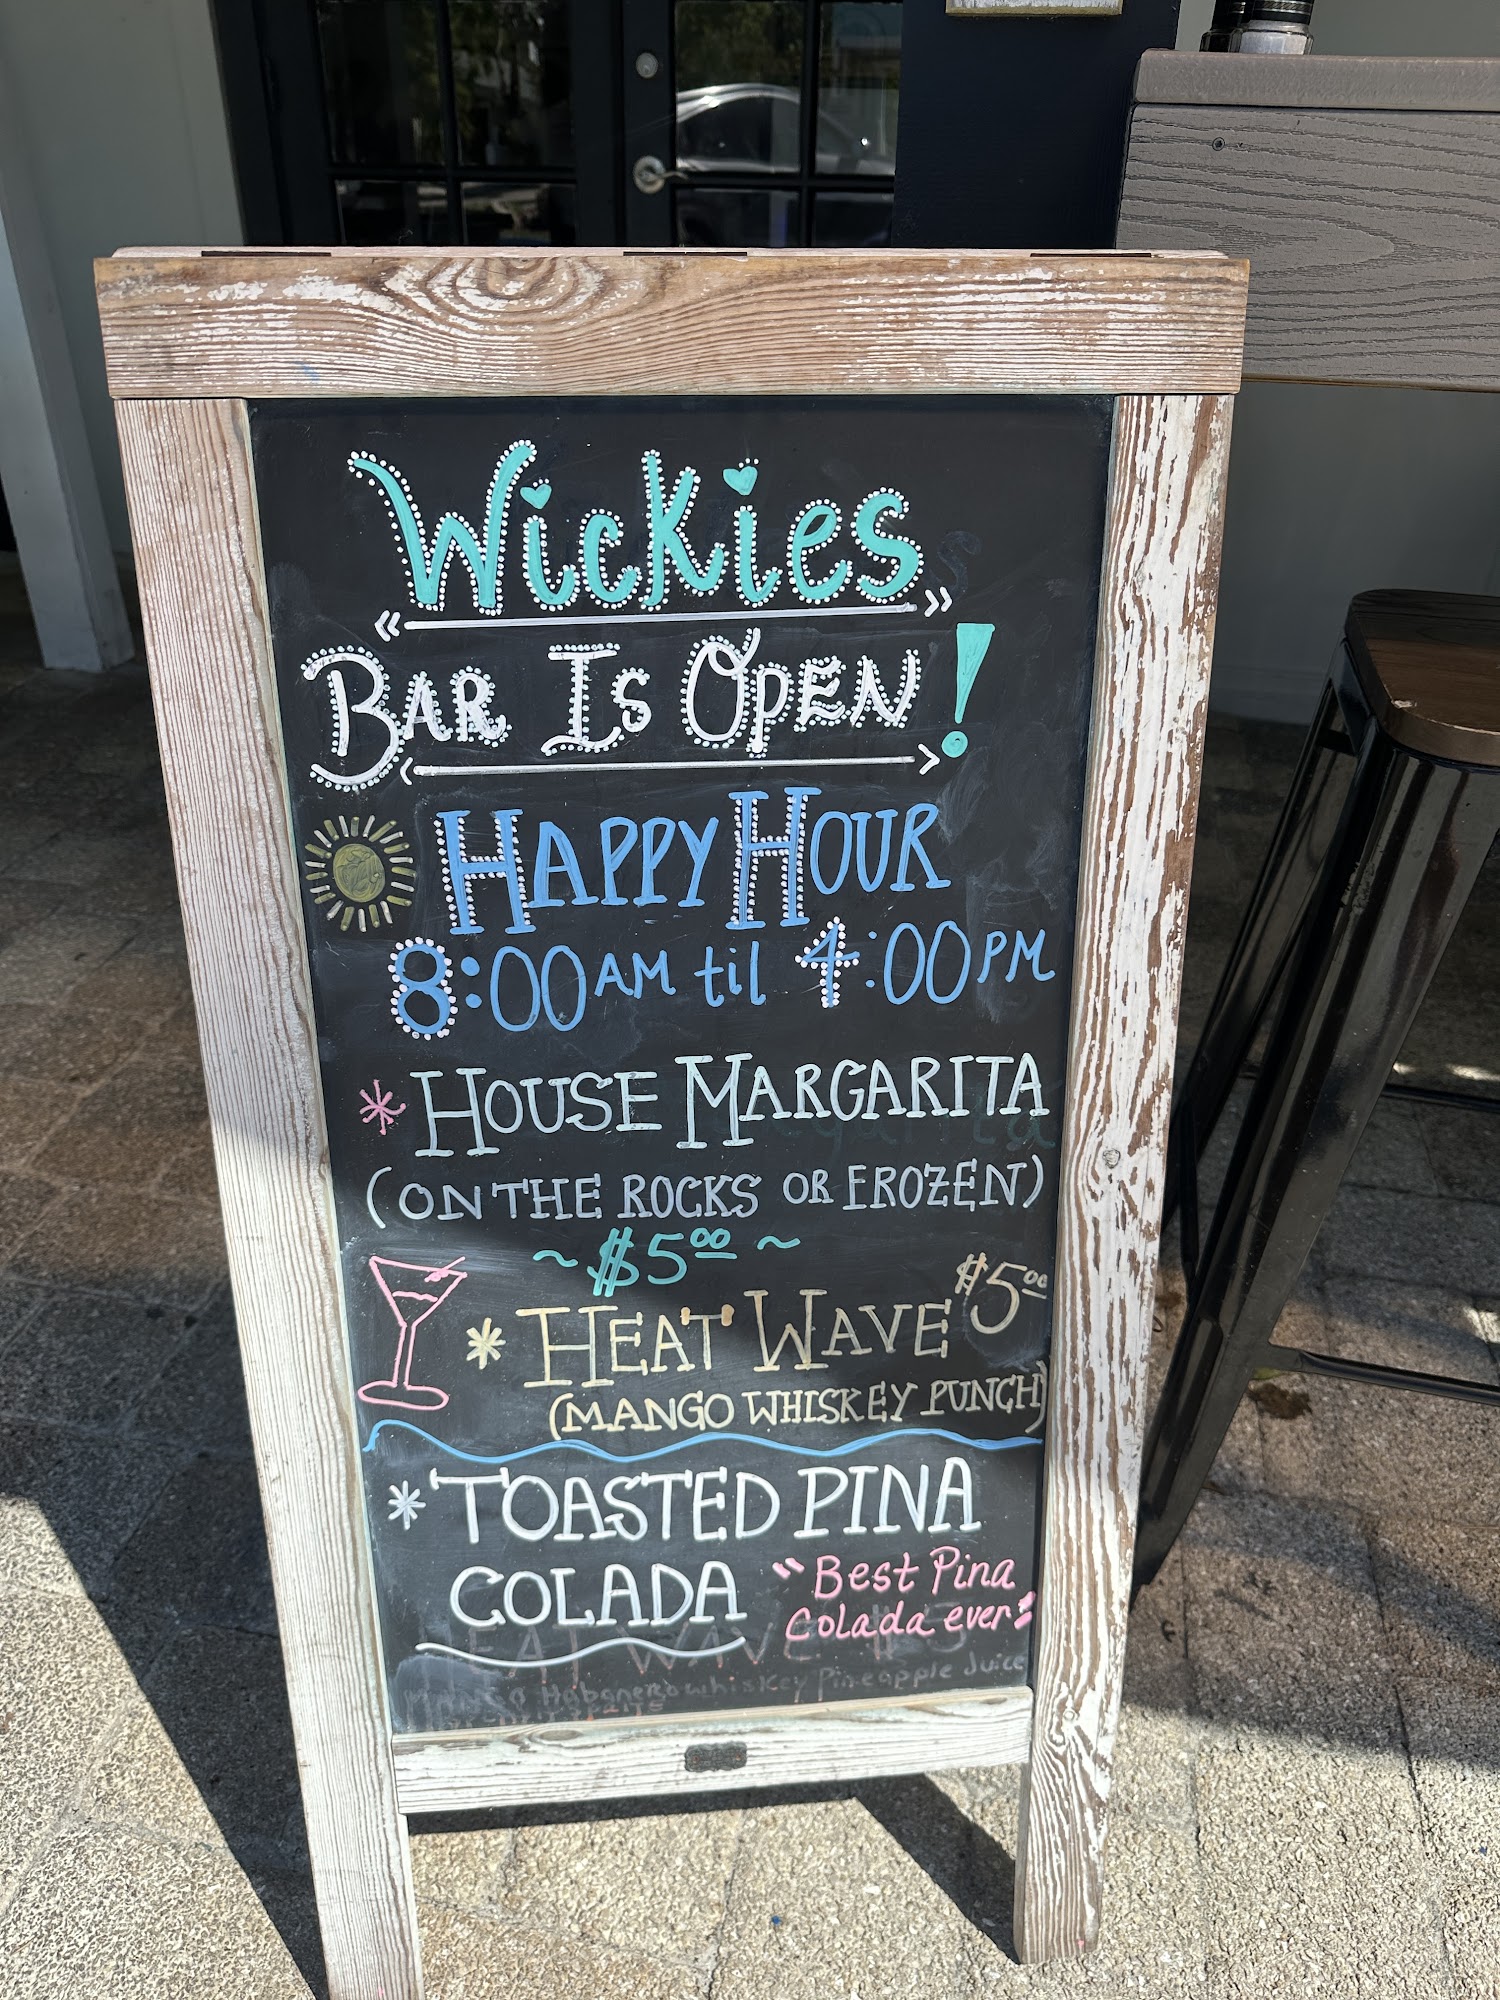 Wickies
BAR IS OPEN!
HAPPY HOUR
8:00AM til 4:00PM
* HOUSE MARGARITA
(ON THE ROCKS OR FROZEN)
~ $5.00 ~
* HEAT WAVE $5.00
(MANGO WHISKEY PUNCH)
* TOASTED PINA
COLADA "Best Pina
Colada ever!"
HEAT WAVE $5
MANGO Habanero whiskey Pineapple Juice